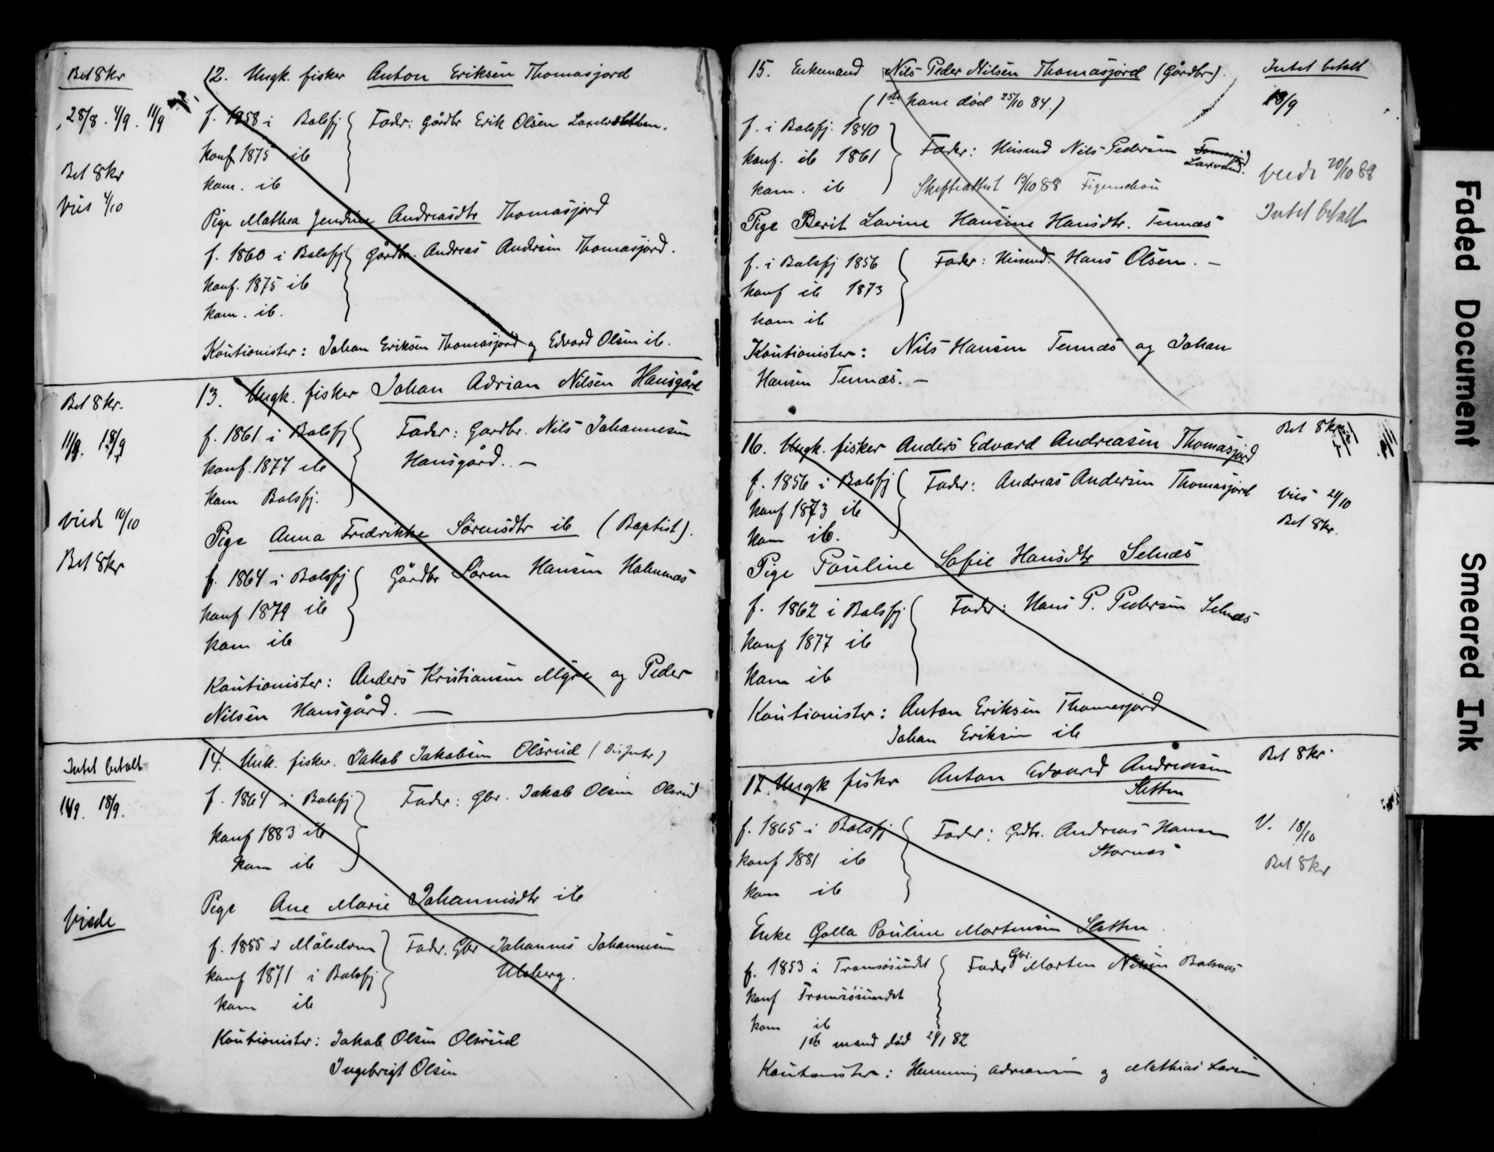 Bet 8 kr
28/8. 4/9. 11/9
Bet 8 kr
vies 4/10
12. Ungk. fisker Anton Eriksen Thomasjord
f. 1858 i Balsfj
konf 1875 ib
kom. ib
Fader: Gårdbr Erik Olsen
Pige Mathea Andreasdtr Thomasjord
f. 1860 i Balsfj
konf. 1875 ib
kom. ib.
Gårdbr. Andreas Andersen Thomasjord.
Kautionister: Johan Eriksen Thomasjord og Edvard Olsen ib.
Bet 8 kr.
11/9. 18/9
viede 10/10
Bet 8 kr
13. Ungk. fisker Johan Adrian Nilsen Hansgård
f. 1861 i Balsfj
konf. 1877 ib
kom Balsfj.
Fader: Gardbr. Nils Johannesen
Hansgård. —
Pige Anna Fredrikke Sørensdtr ib (Baptist).
f. 1864 i Balsfj
konf 1879 ib
kom ib
Gårdbr Søren Hansen
Kautionister: Anders Kristiansen Myre og Peder
Nilsen Hansgård. —
Intet betalt
14/9. 18/9.
Viede
14. Unk. fisker. Jakob Jakobsen Olsrud
f. 1864 i Balsfj
konf 1883 ib
kom ib
Fader: Gbr. Jakob Olsen Olsrud
Pige Ane Marie Johannesdtr ib
f. 1855 i Målselven
konf 1871 i Balsfj
kom ib
Fader. Gbr Johannes Johannesen
Ulsberg.
Kautionister: Jakob Olsen Olsrud
Ingebrigt Olsen
15. Enkemand Nils Peder Nilsen Thomasjord (Gårdbr).
(1ste kone død 25/10 84)
f. i Balsfj. 1840
konf. ib 1861
kom. ib
Fader: Husmd Nils Pedersen
Skifteattest 88
Pige Berit Lovine Hansine Hansdtr. Tennæs
f. i Balsfj 1856
konf ib 1873
kom ib
Fader: Husmd. Hans Olsen. —
Kautionister: Nils Hansen Tennæs og Johan
Hansen Tennæs. —
Intet betalt
18/9
viede 20/10 88
Intet betalt
16. Ungk. fisker Anders Edvard Andreasen Thomasjord
f. 1856 i Balsfj
konf 1873 ib
kom ib.
Fader: Andreas Andersen Thomasjord
Pige Pauline Sofie Hansdtr Selnæs
f. 1862 i Balsfj
konf 1877 ib
kom ib
Fader: Hans P. Pedersen Selnæs
Kautionister: Anton Eriksen Thomasjord
Johan Eriksen ib
Bet 8 kr
vies 21/10
Bet 8 kr.
17. Ungk fiskr Anton Edvard Andreasen
Sletten
f. 1865 i Balsfj
konf 1881 ib
kom ib
Fader: Grdbr. Andreas Hansen
Stornes
Enke Golla Pauline Mortensen Sletten.
f. 1853 i Tromsøsundet
konf Tromsøsundet
kom ib
Fader Gbr. Morten Nilsen Balsnes
1ste mand død 82
Kautionister: Henning Adriansen og Mathias Larsen
Bet 8 kr.
V. 18/10
Bet 8 kr
Faded Document
Smeared Ink